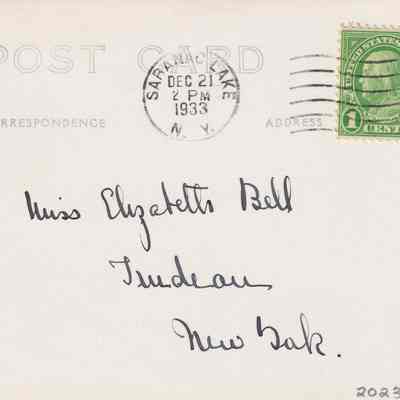 POST CARD
SARANAC LAKE
DEC 21
2 PM
1933
N. Y.
UNITED STATES
1
CENT
RRESPONDENCE
ADDRESS
Miss Elizabeth Bell
Trudeau
New York.
2023